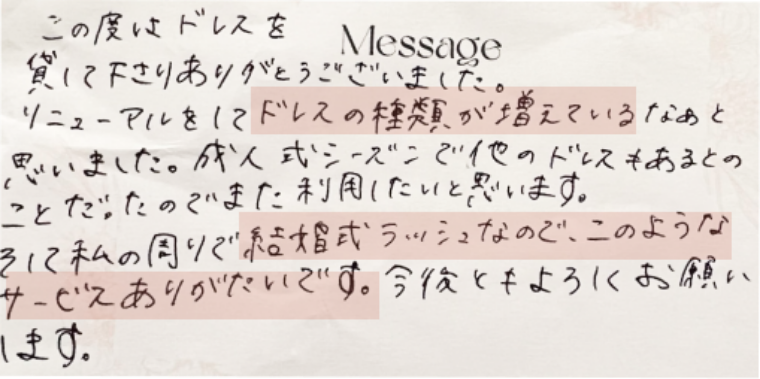 この度はドレスを
Message
貸して下さりありがとうございました。
リニューアルをしてドレスの種類が増えているなぁと
思いました。成人式シーズンで他のドレスもあるとの
ことだったのでまた利用したいと思います。
そして私の周りで結婚式ラッシュなので、このような
サービスありがたいです。今後ともよろしくお願い
します。